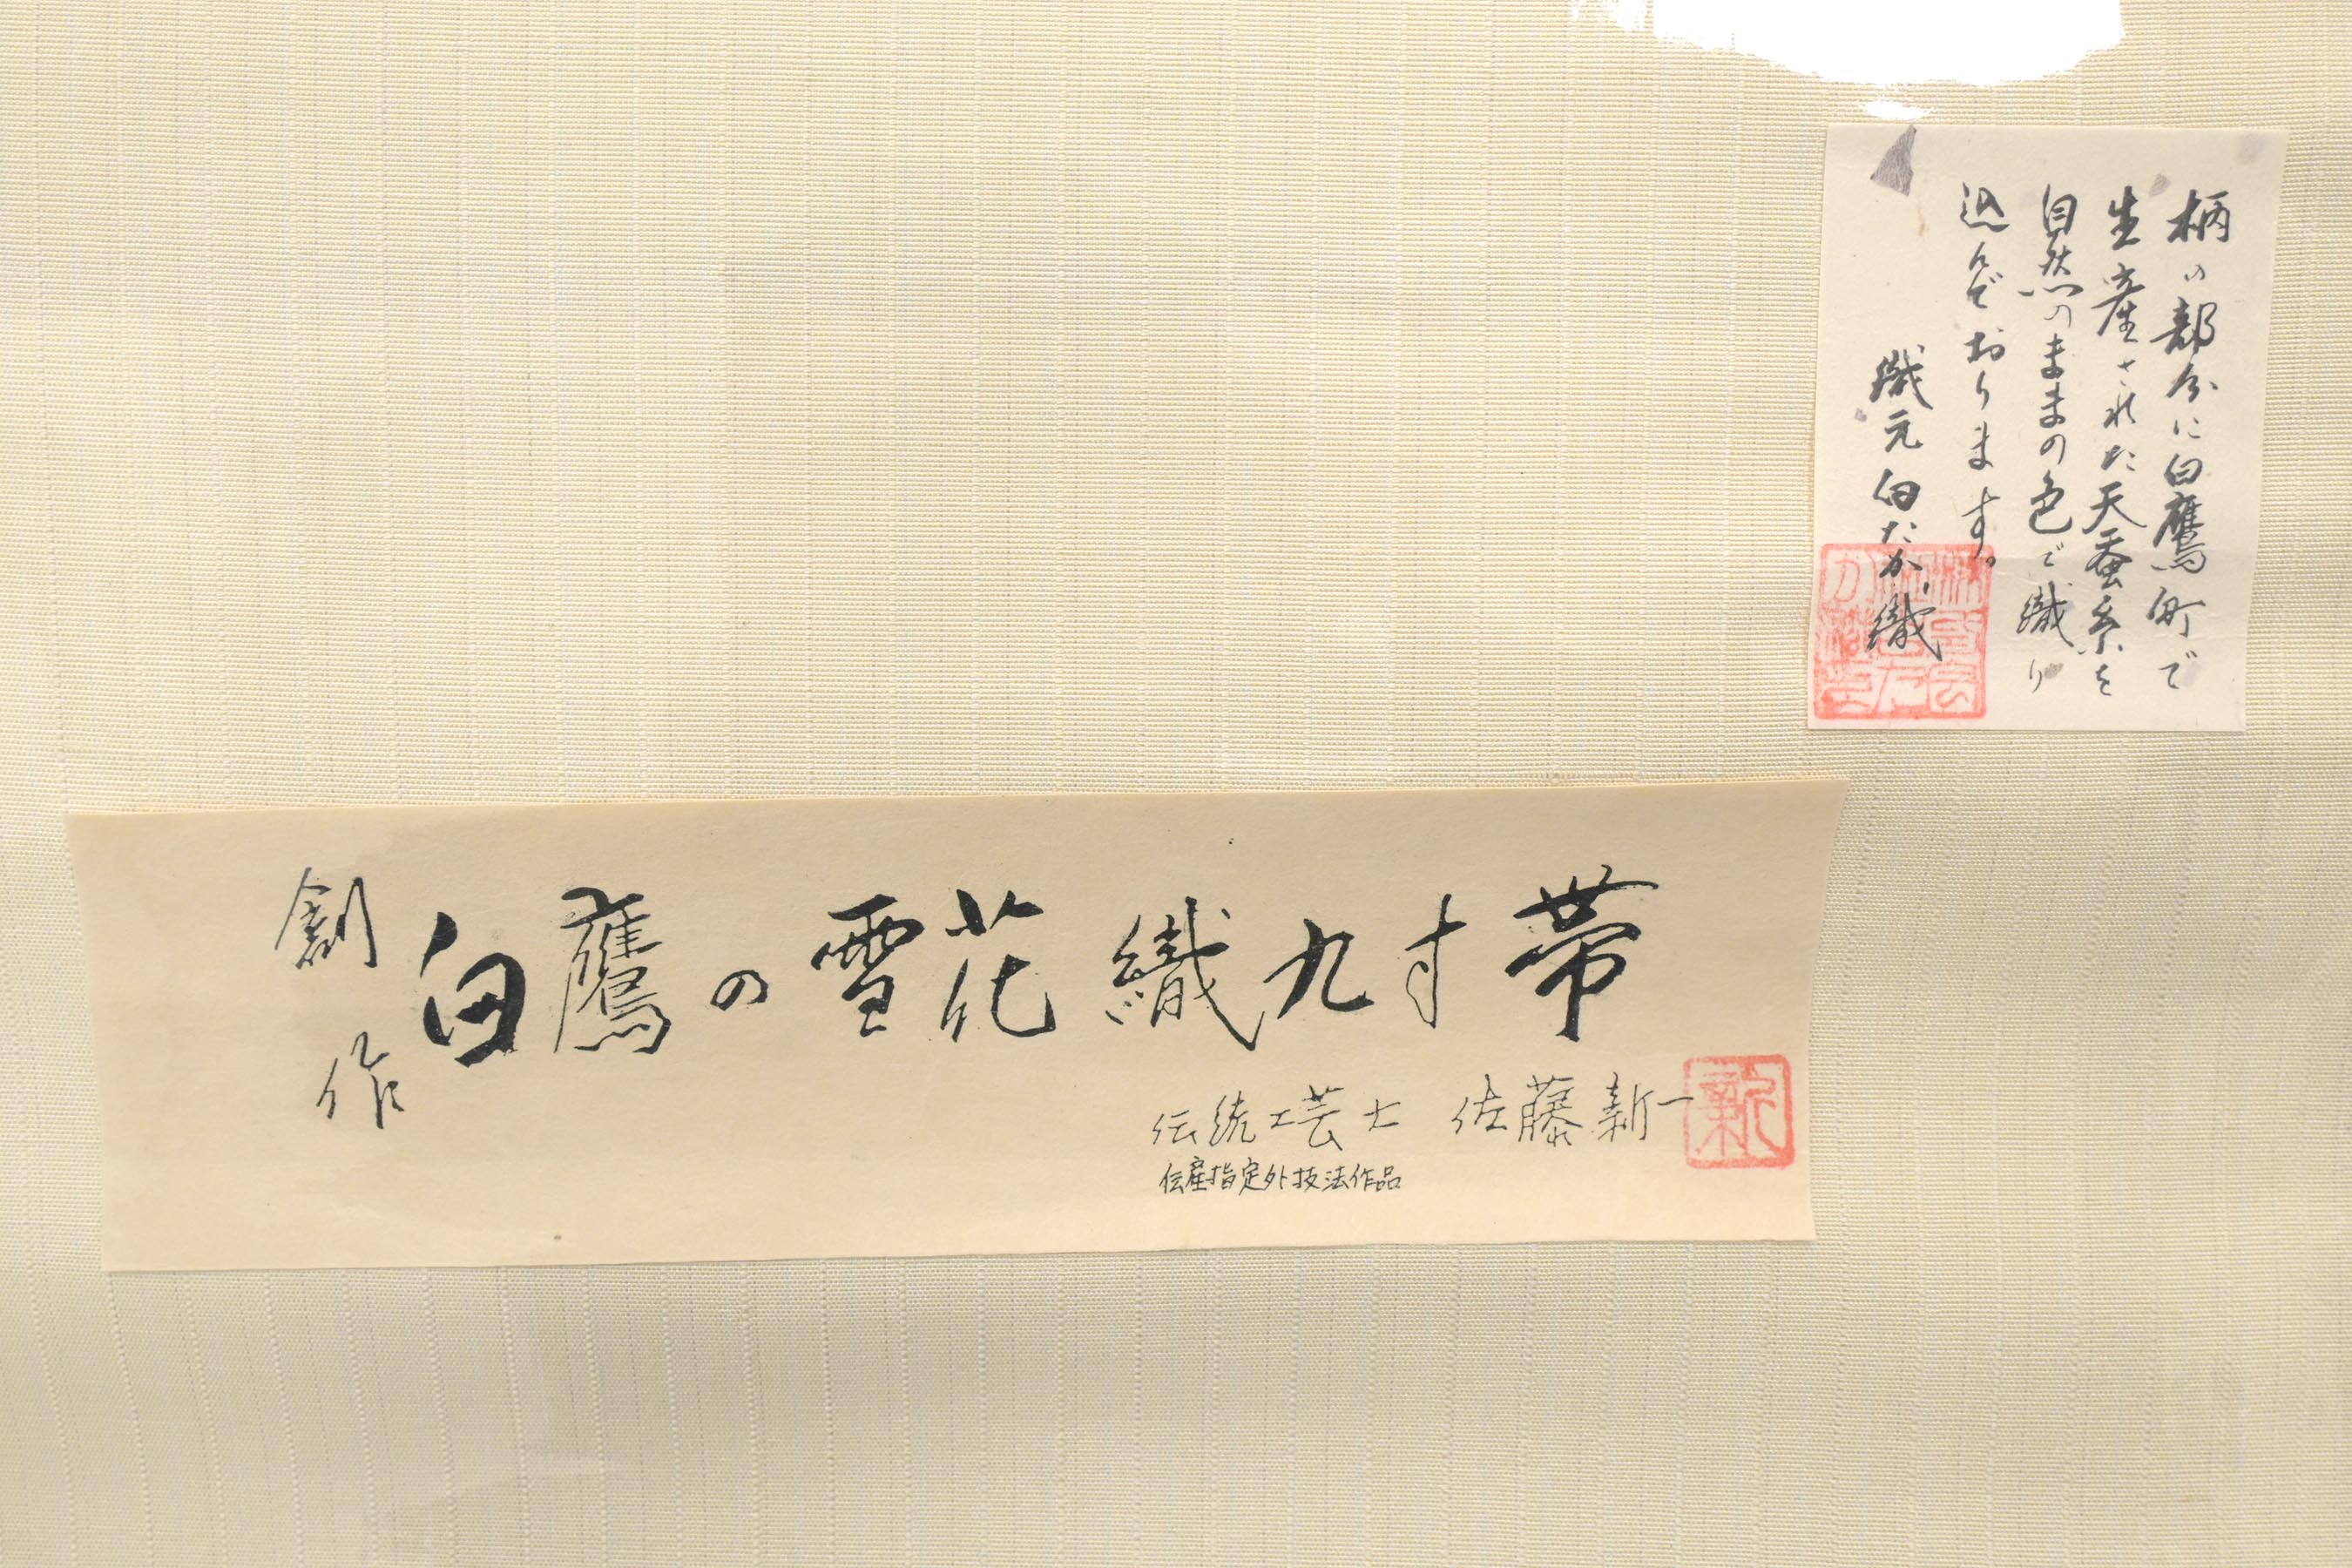 柄の部分に白鷹町で
生産された天蚕糸を
自然のままの色で織り
込んでおります。
織元 白たか織
創作
白鷹の雪花織九寸帯
伝統工芸士 佐藤新一
伝産指定外技法作品
新